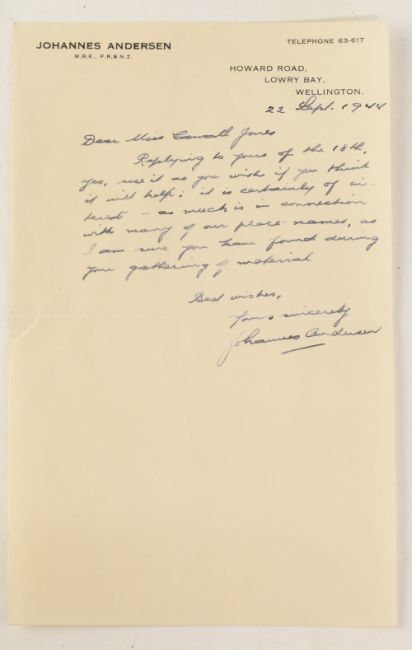 JOHANNES ANDERSEN
M.B.E., F.R.S.N.Z.
TELEPHONE 63-617
HOWARD ROAD,
LOWRY BAY,
WELLINGTON.
22 Sept. 1944
Dear Miss Jones
Replying to yours of the 18th,
yes, use it as you wish if you think
it will help; it is certainly of in-
terest – as much is in connection
with many of our place-names, as
I am sure you have found during
your gathering of material
Best wishes,
Yours sincerely
Johannes Andersen